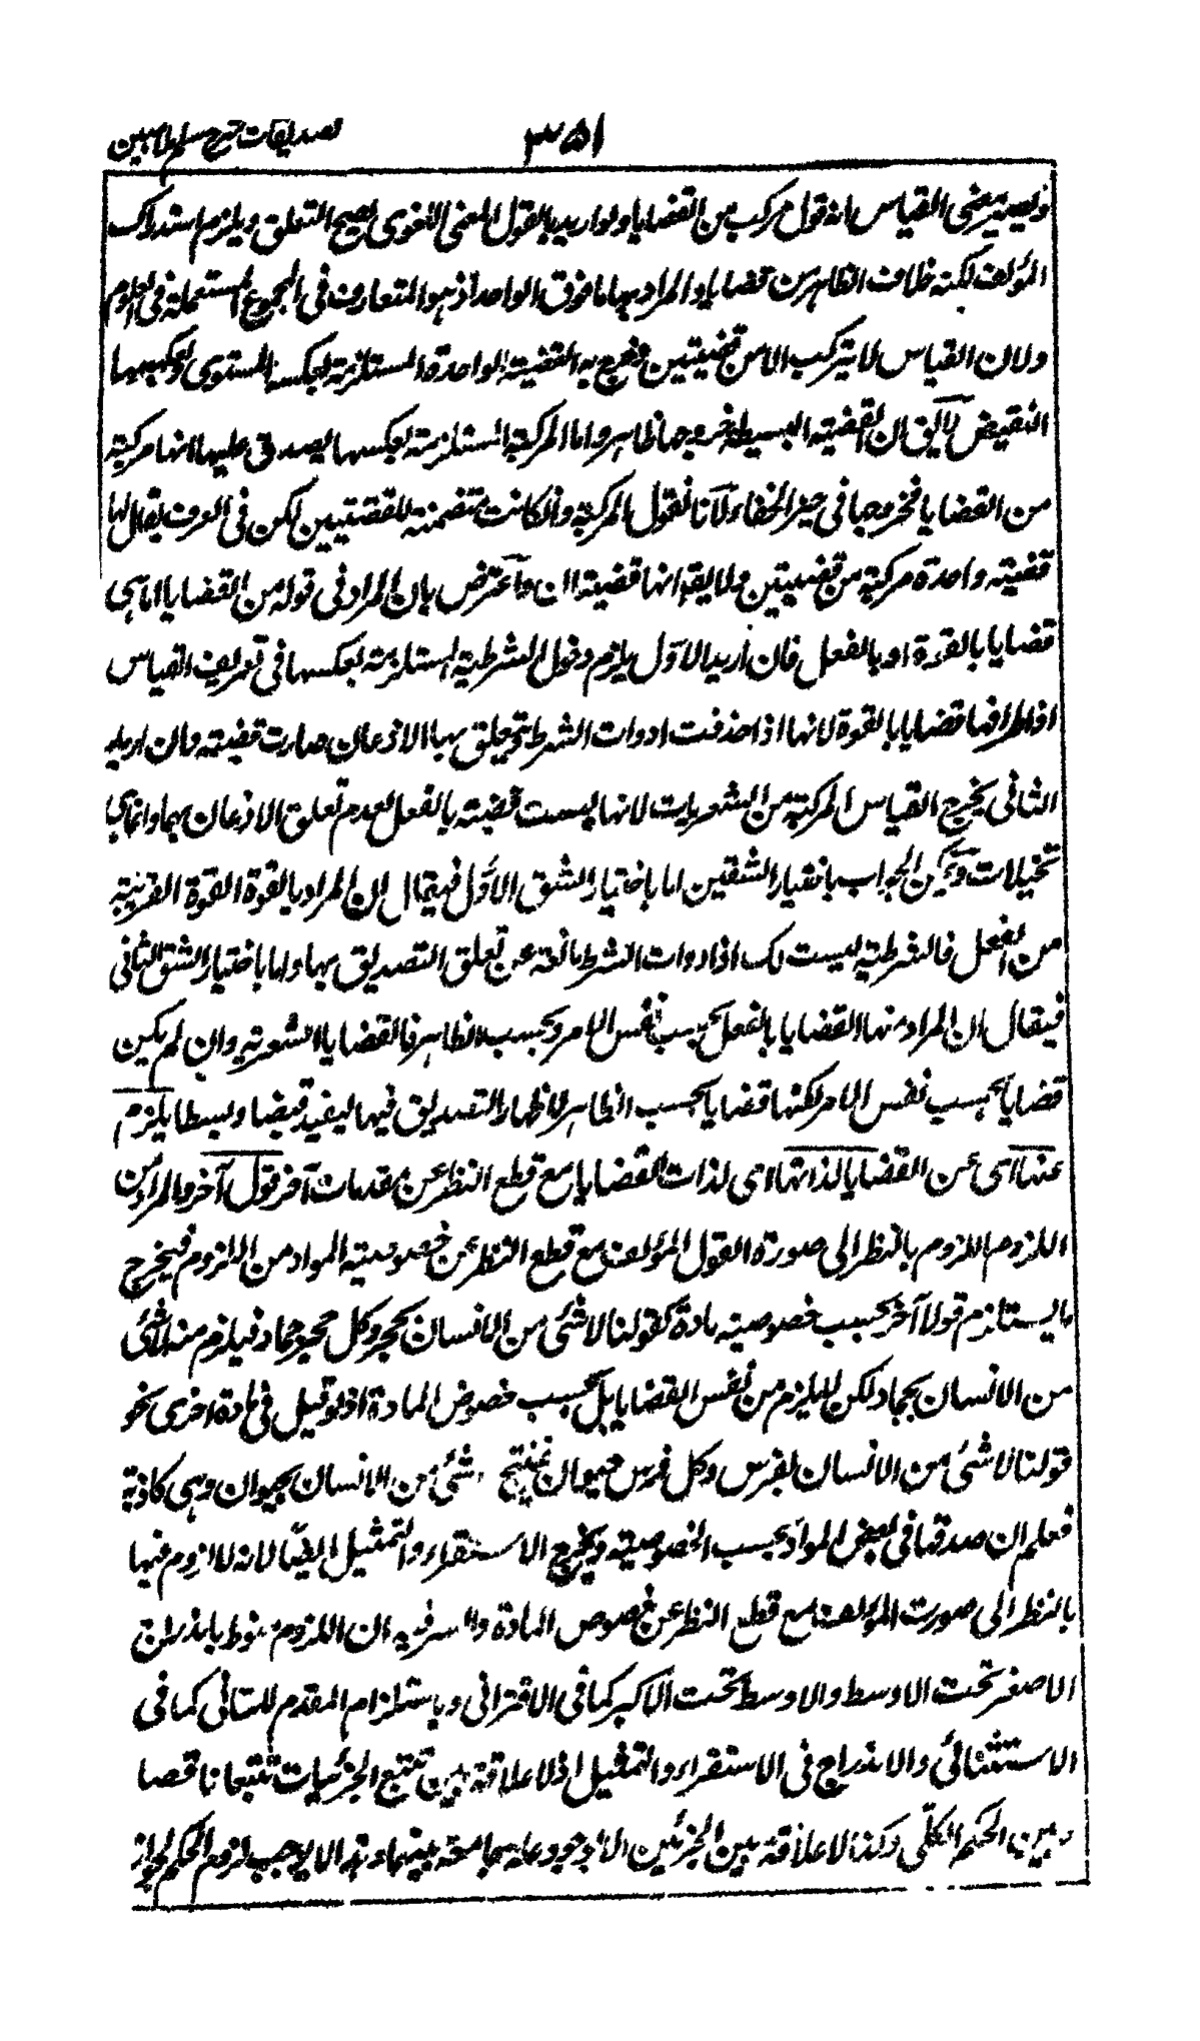 ٣٥١ تصديقات شرح سلم ملا مبين
فيصير معنى القياس انه قول مركب من القضايا ولو اريد بالقول المعنى اللغوي يصح التعلق ويلزم استدراك
المؤلف لكنه خلاف الظاهر من قضايا والمراد بها ما فوق الواحد اذ هو المتعارف في الجموع المستعملة في العلوم
ولان القياس لا يتركب الا من قضيتين فخرج به القضية الواحدة المستلزمة لعكسها المستوي او عكسها
النقيض لا يق ان القضية البسيطة خروجها ظاهر واما المركبة المستلزمة لعكسها يصدق عليها انها مركبة
من القضايا فخروجها في حيز الخفاء لانا نقول المركبة وان كانت متضمنة للقضيتين لكن في العرف يقال لها
قضية واحدة مركبة من قضيتين ولا يق انها قضيتان واعترض بان المراد في قوله من القضايا اما هي
قضايا بالقوة او بالفعل فان اريد الاول يلزم دخول الشرطية المستلزمة لعكسها في تعريف القياس
اذ اطرافها قضايا بالقوة لانها اذا حذفت ادوات الشرط تتعلق بها الاذعان صارت قضية وان اريد به
الثاني يخرج القياس المركبة من الشعريات لانها ليست قضية بالفعل لعدم تعلق الاذعان بها وانما هي
تخيلات ويمكن الجواب باختيار الشقين اما باختيار الشق الاول فيقال ان المراد بالقوة القوة القريبة
من الفعل فالشرطية ليست كك اذ ادوات الشرط مانعة عن تعلق التصديق بها واما باختيار الشق الثاني
فيقال ان المراد منها القضايا بالفعل بحسب نفس الامر وبحسب الظاهر فالقضايا الشعرية وان لم يكن
قضايا بحسب نفس الامر لكنها قضايا بحسب الظاهر لاظهار التصديق فيها ليفيد قبضا وبسطا يلزم
عنها اي عن القضايا لذاتها اي لذات القضايا مع قطع النظر عن مقدمات آخر قول آخر والمراد من
اللزوم اللزوم بالنظر الى صورة القول المؤلف مع قطع النظر عن خصوصية المواد من اللزوم فيخرج
ما يستلزم قولا آخر بحسب خصوصية مادة كقولنا لا شئ من الانسان بحجر وكل حجر جماد فيلزم منه لا شئ
من الانسان بجماد لكن لا يلزم من نفس القضايا بل بحسب خصوص المادة اذ لو قيل في مادة اخرى نحو
قولنا لا شئ من الانسان بفرس وكل فرس حيوان ينتج شئ من الانسان بحيوان وهي كاذبة
فعلم ان صدقها في بعض المواد بحسب الخصوصية ويخرج الاستقراء والتمثيل ايضا لانه لا لزوم فيها
بالنظر الى صورت المؤلف مع قطع النظر عن خصوص المادة والسر فيه ان اللزوم منوط باندراج
الاصغر تحت الاوسط والاوسط تحت الاكبر كما في الاقتراني وباستلزام المقدم للتالي كما في
الاستثنائي والاندراج في الاستقراء والتمثيل اذ لا علاقة بين تتبع الجزئيات تتبعا ناقصا
وبين الحكم الكلي وكذا لا علاقة بين الجزئين الا وجود علة جامعة بينهما الا يوجب لزوم الحكم لجواز